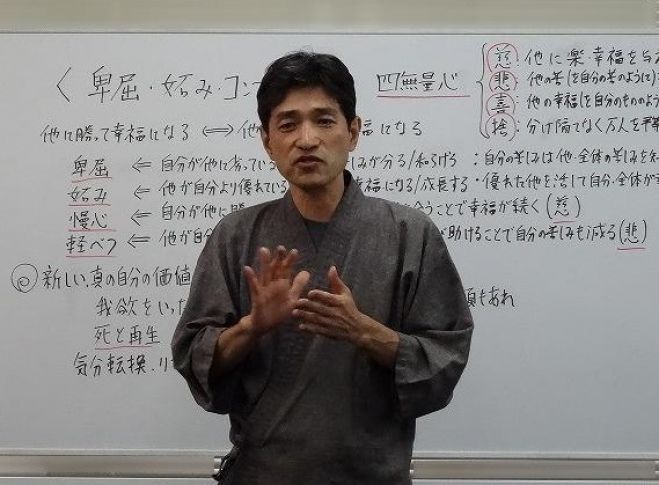 〈卑屈・妬み・コン
四無量心
慈：他に楽・幸福を与え
悲：他の苦しみを自分の苦のように
喜：他の幸福を自分のもののよう
捨：分け隔てなく万人を平等
他に勝って幸福になる ⇔ 他 福になる
卑屈 ⇐ 自分が他に劣ってい しみが分る/和らげる：自分の苦しみは他・全体の苦しみを
妬み ⇐ 他が自分より優れている 幸福になる/成長する・優れた他を活して自分・全体が
慢心 ⇐ 自分が他に勝 合うことで幸福が続く（慈）
軽べつ ⇐ 他が自分 が助けることで自分の苦しみも減る（悲）
◎新しい真の自分の価値
我欲をいった もあれ
死と再生
気分転換・リ